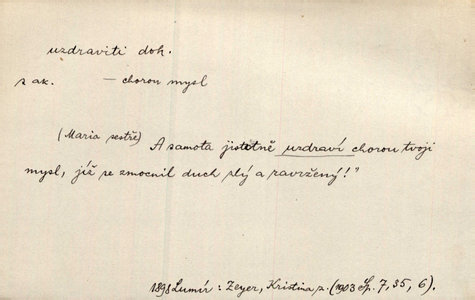 uzdraviti dok.
s ak. — chorou mysl
(Maria sestře) A samota jistotně uzdraví chorou tvoji
mysl, jíž se zmocnil duch zlý a zavržený!"
1898 Lumír: Zeyer, Kristina z. (1903 Sp. 7, 35, 6).